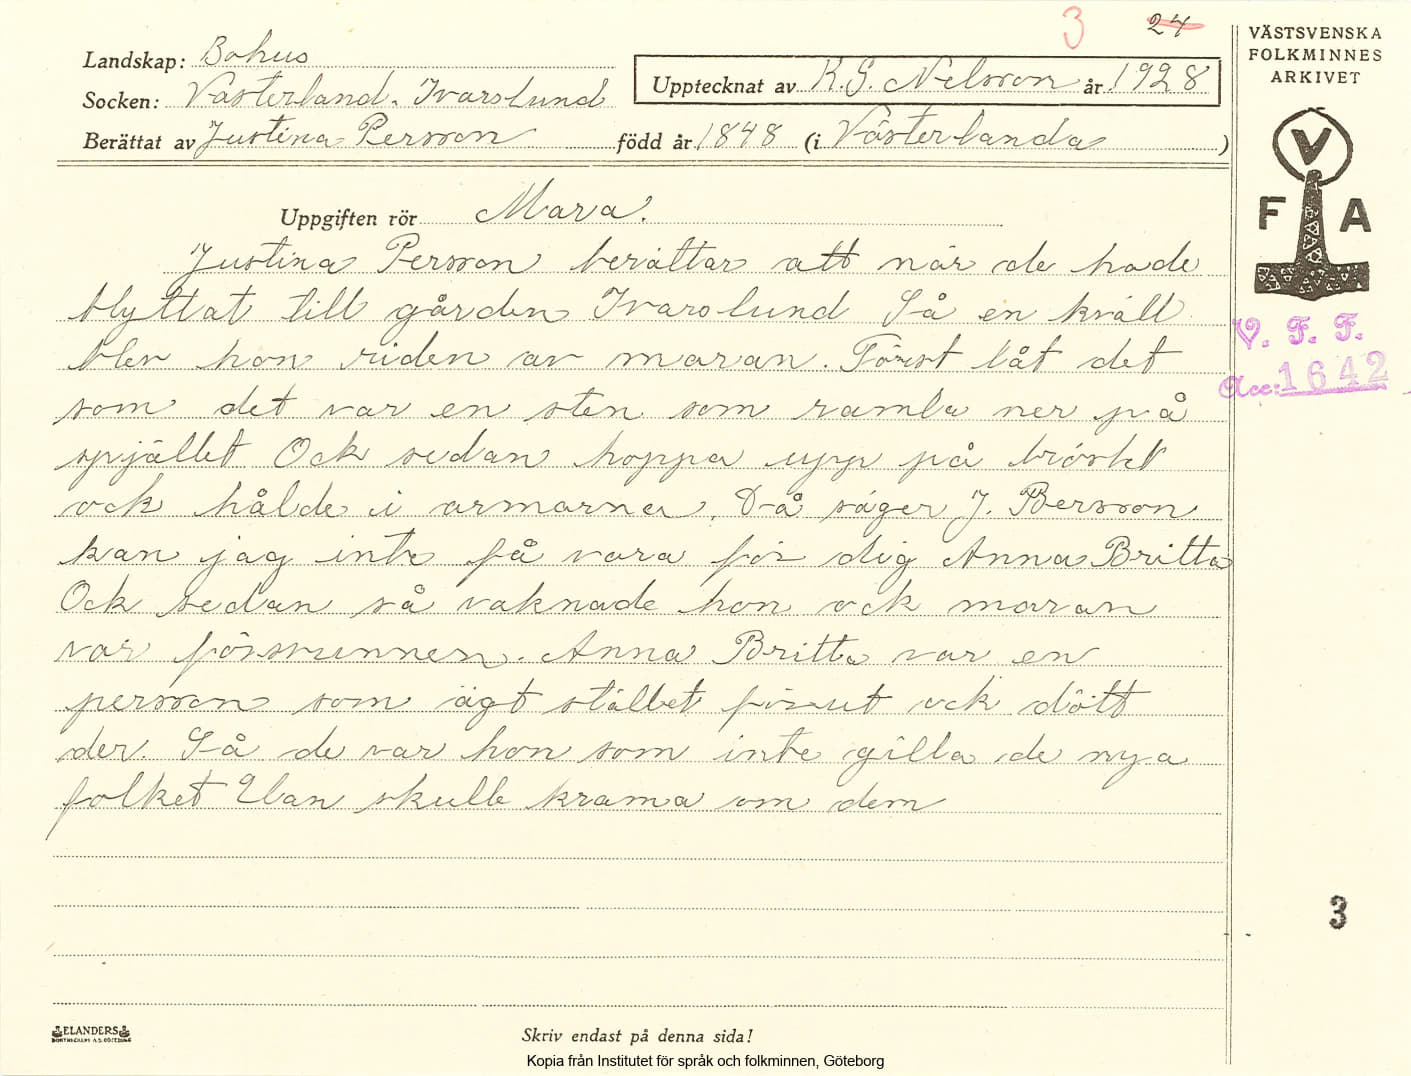 3 24
Landskap: Bohus
Socken: Västerland. Ivarslund
Upptecknat av K. G. Nelsson år 1928
Berättat av Justina Persson född år 1848 (i Västerlanda )
VÄSTSVENSKA
FOLKMINNES
ARKIVET
V
F A
V. F. F.
Acc: 1642
Uppgiften rör Mara.
Justina Persson berättar att när de hade
blyttat till gården Ivarslund Så en kväll
blev hon riden av maran. Först låt det
som det var en sten som ramla ner på
spjället Ock sedan hoppa upp på bröstet
ock hålde i armarna. Då säger J. Persson
kan jag inte få vara för dig Anna Britta
Ock sedan så vaknade hon ock maran
var försvunnen. Anna Britta var en
person som ägt stället förut ock dött
der. Så de var hon som inte gilla de nya
folket Utan skulle krama om dem
3
ELANDERS
Skriv endast på denna sida!
Kopia från Institutet för språk och folkminnen, Göteborg